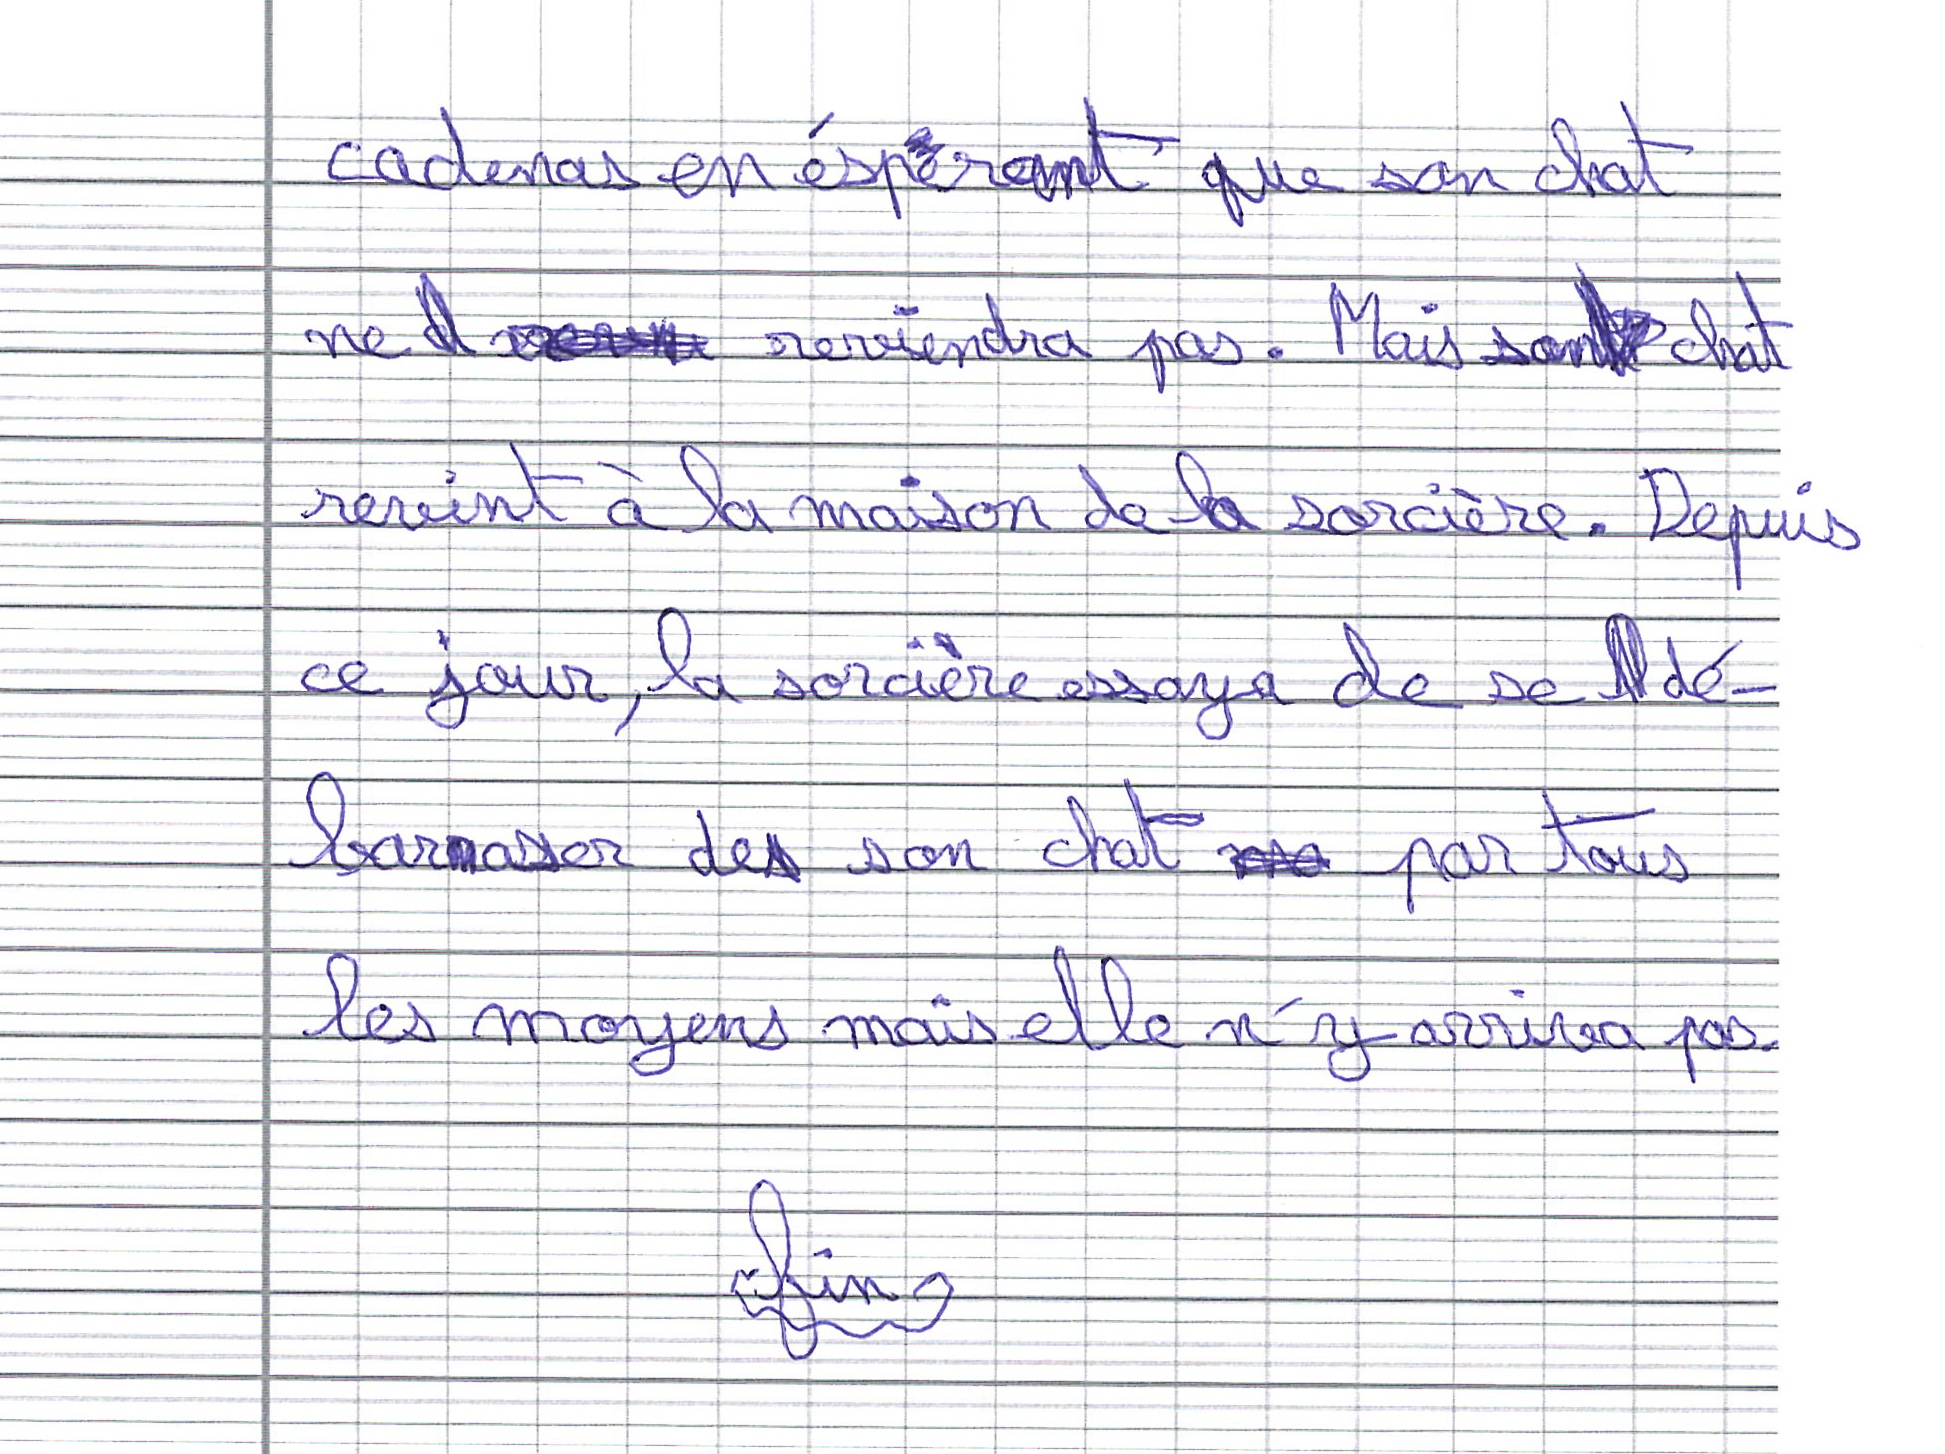 cadenas en éspérant que son chat
ne reviendra pas. Mais son chat
revint à la maison de la sorcière. Depuis
ce jour, la sorcière essaya de se dé-
barrasser de son chat par tous
les moyens mais elle n'y arriva pas.
fin